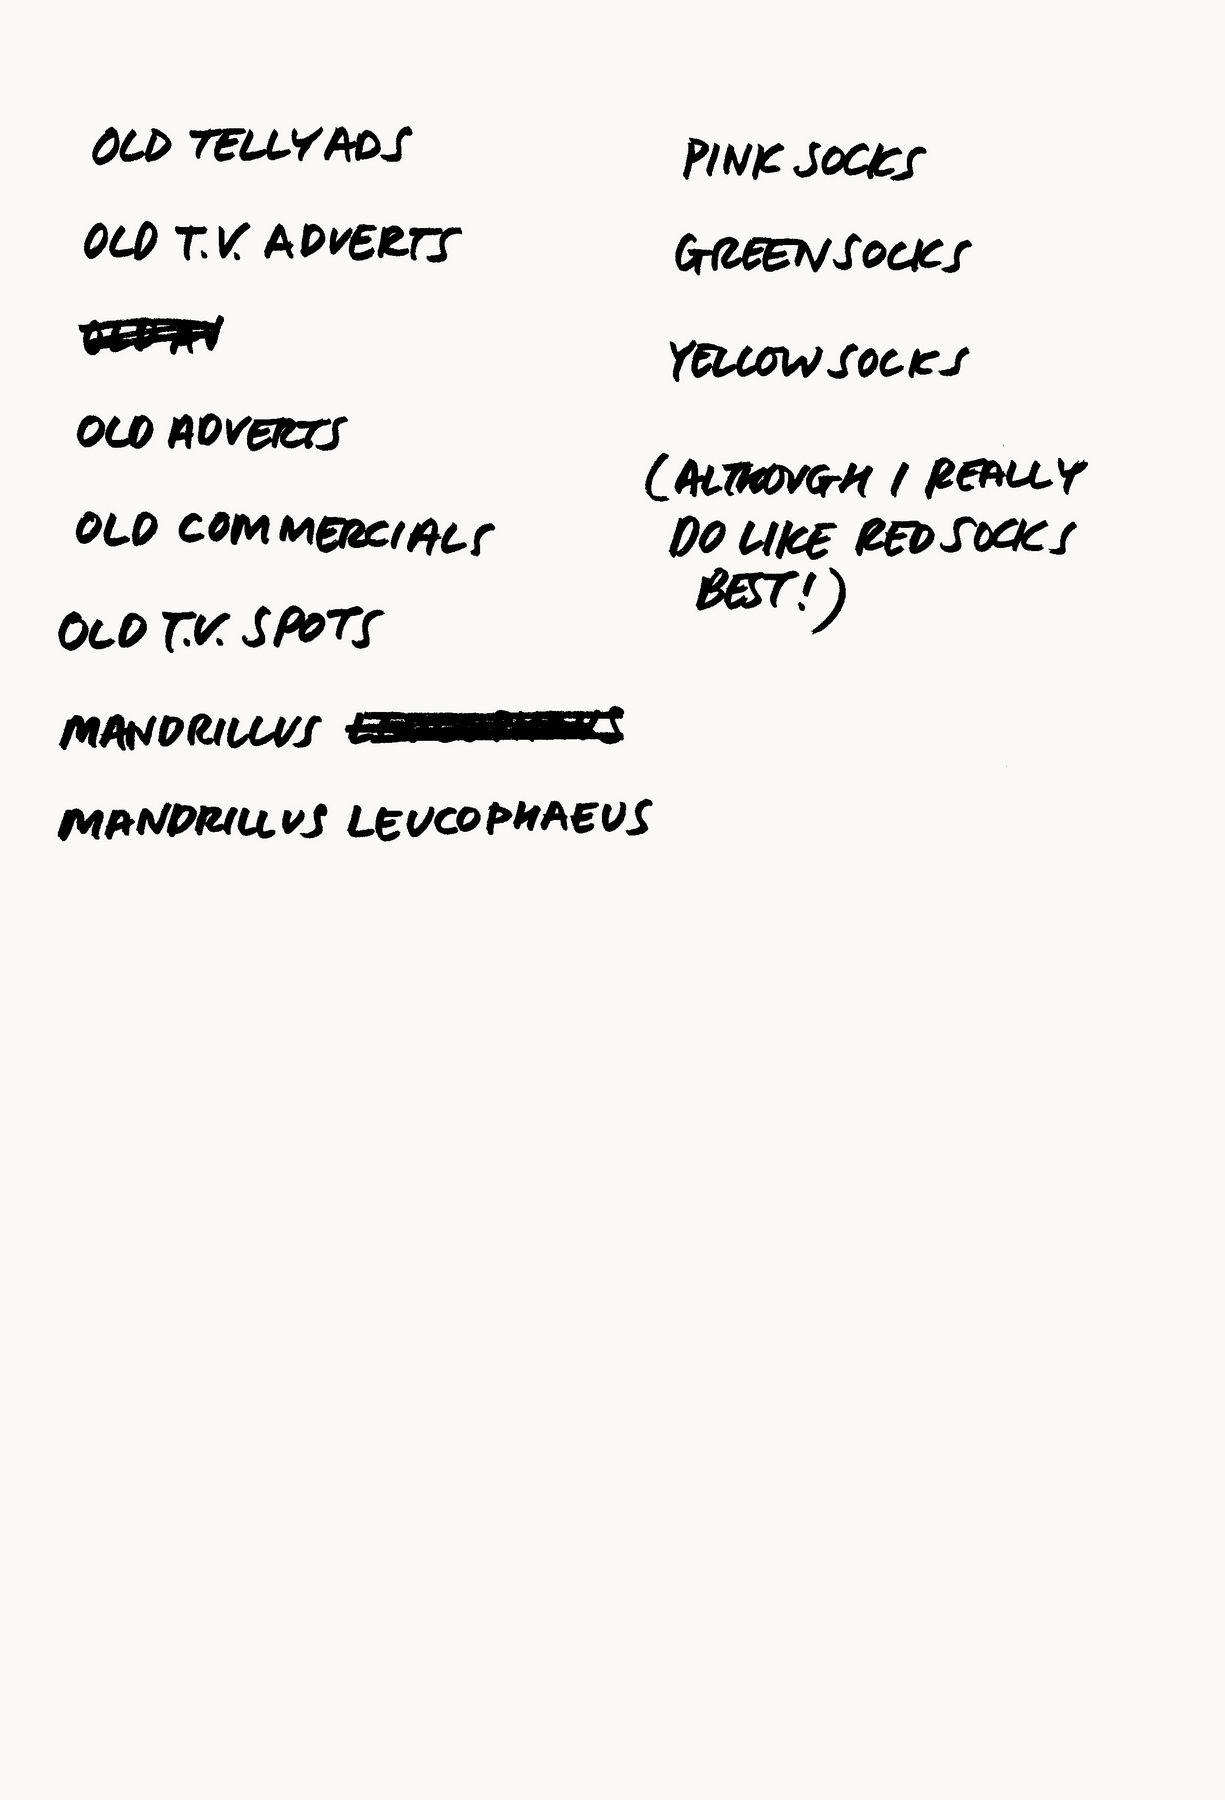 OLD TELLY ADS
OLD T.V. ADVERTS
OLD ADVERTS
OLD COMMERCIALS
OLD T.V. SPOTS
MANDRILLUS
MANDRILLUS LEUCOPHAEUS
PINK SOCKS
GREEN SOCKS
YELLOW SOCKS
(ALTHOUGH I REALLY
DO LIKE RED SOCKS
BEST!)